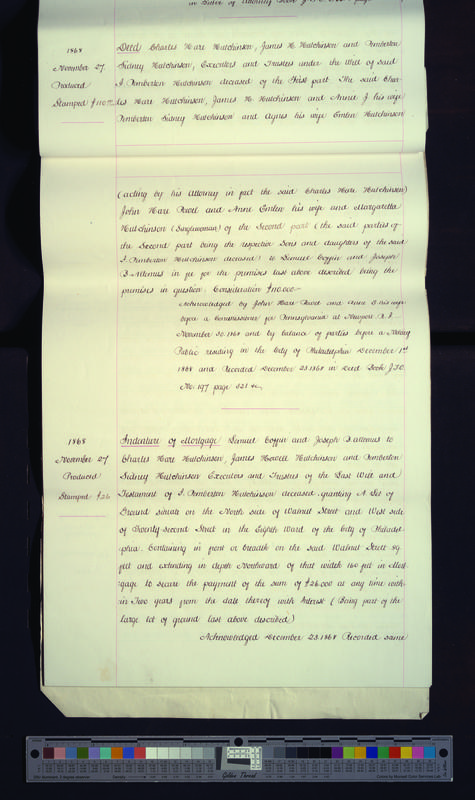 in Letter of Attorney Book J.T.O. No. page
1868
November 27
Produced
Stamped $110.00
Deed Charles Hare Hutchinson, James H. Hutchinson and Pemberton
Sidney Hutchinson, Executors and Trustees under the Will of said
I. Pemberton Hutchinson deceased of the First part. The said Char-
les Hare Hutchinson, James H. Hutchinson and Annie J his wife
Pemberton Sidney Hutchinson and Agnes his wife Emlen Hutchinson
(acting by his Attorney in fact the said Charles Hare Hutchinson)
John Hare Powel and Anne Emlen his wife and Margaretta
Hutchinson (Singlewoman) of the Second part (the said parties of
the Second part being the respective Sons and daughters of the said
I. Pemberton Hutchinson deceased) to Lemuel Coffin and Joseph
B. Altemus in fee for the premises last above described being the
premises in question. Consideration $110.000—
Acknowledged by John Hare Powel and Anne E. his wife
before a Commissioner for Pennsylvania at Newport R. I.
November 30. 1868 and by balance of parties before a Notary
Public residing in the City of Philadelphia December 1st
1868 and Recorded December 23. 1868 in Deed Book J.T.O.
No. 197 page 521 &c.
1868
November 27
Produced
Stamped $26
Indenture of Mortgage Lemuel Coffin and Joseph B. Altemus to
Charles Hare Hutchinson, James Howell Hutchinson and Pemberton
Sidney Hutchinson Executors and Trustees of the Last Will and
Testament of I. Pemberton Hutchinson deceased. granting A Lot of
Ground situate on the North side of Walnut Street and West side
of Twenty-second Street in the Eighth Ward of the City of Philadel-
phia. Containing in front or breadth on the said Walnut Street 59
feet and extending in depth Northward of that width 160 feet in Mort-
gage to secure the payment of the sum of $26.000 at any time with-
in Two years from the date thereof with Interest (Being part of the
large lot of ground last above described)
Acknowledged December 23. 1868 Recorded same